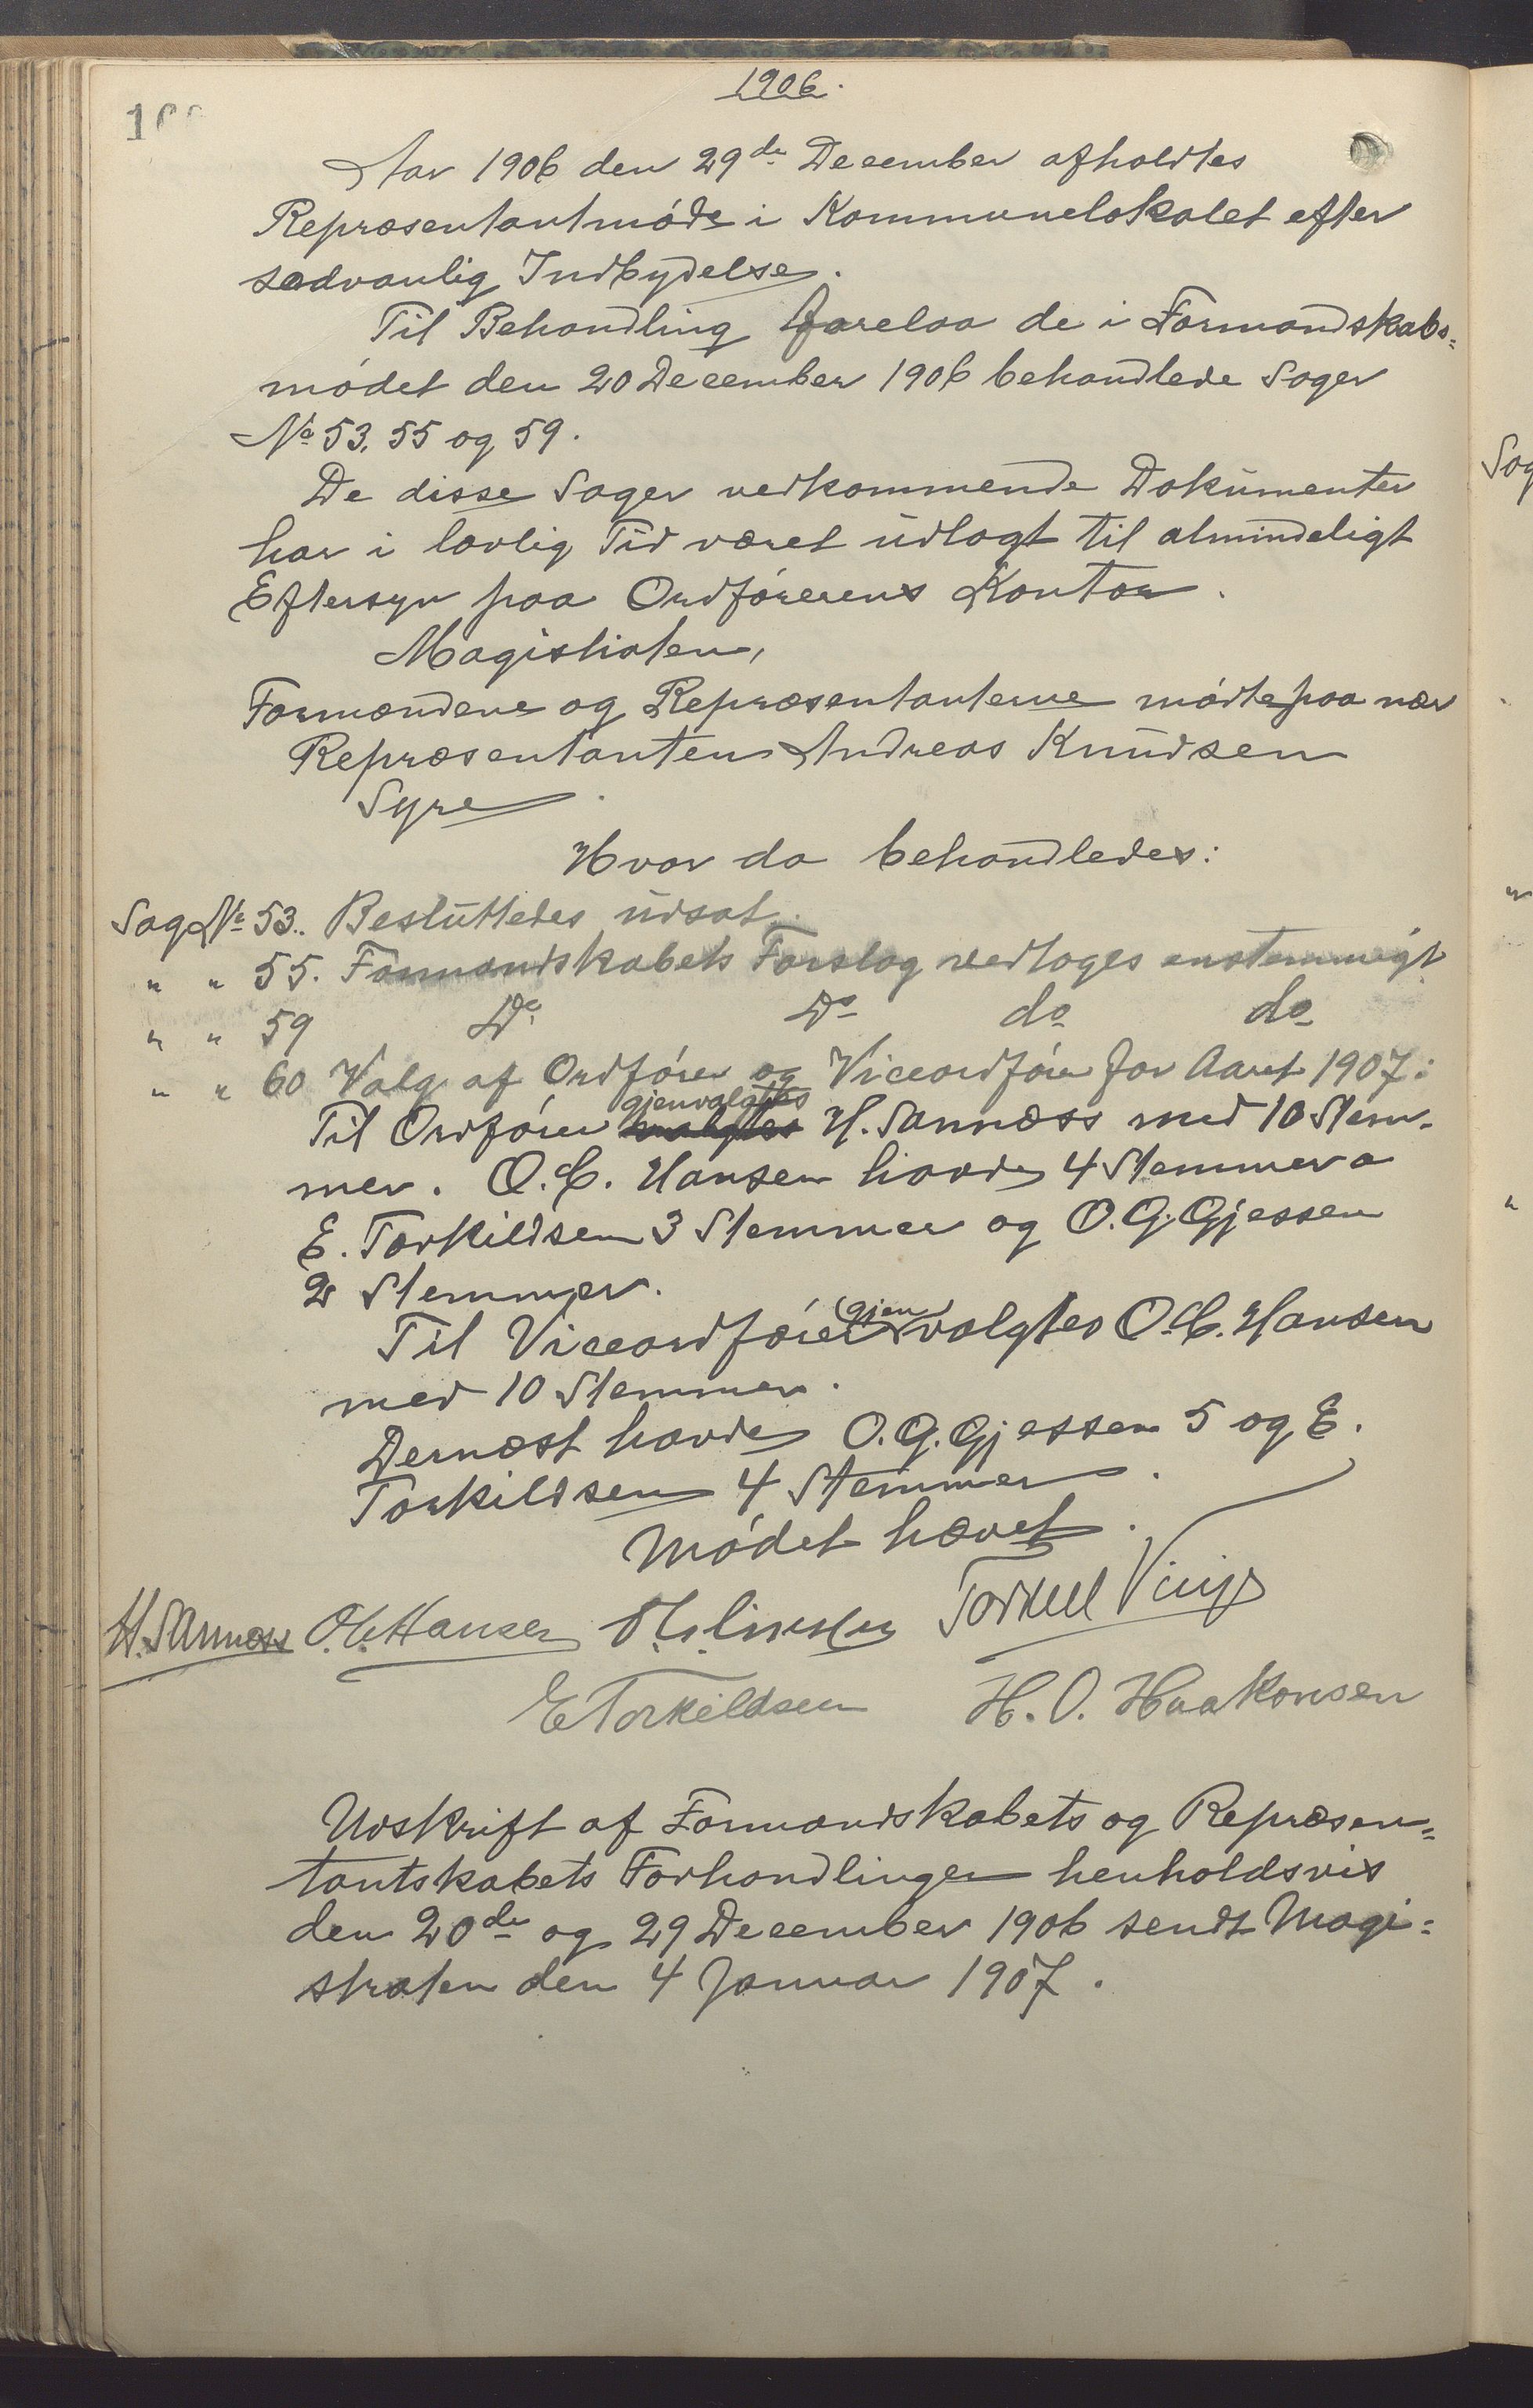 1906.
Aar 1906 den 29de December afholdtes
Repræsentantmøde i Kommunelokalet efter
sædvanlig Indbydelse.
Til Behandling forelaa de i Formandskabs=
mødet den 20 December 1906 behandlede Sager
No 53, 55 og 59.
De disse Sager vedkommende Dokumenter
har i lovlig Tid været udlagt til almindeligt
Eftersyn paa Ordførerens Kontor.
Magistraten,
Formændene og Repræsentanterne mødte paa nær
Repræsentanten Andreas Knudsen
Syre.
Hvor da behandledes:
Sag No 53. Besluttedes udsat.
" " 55. Formandskabets Forslag vedtoges enstemmigt
" " 59 Do Do do do
" " 60 Valg af Ordfører og Viceordfører for Aaret 1907:
Til Ordfører gjenvalgtes H. Sannæss med 10 Stem-
mer. O. C. Hansen havde 4 Stemmer
E. Torkildsen 3 Stemmer og O. G. Gjessen
2 Stemmer.
Til Viceordfører gjenvalgtes O. C. Hansen
med 10 Stemmer.
Dernæst havde O. G. Gjessen 5 og E.
Torkildsen 4 Stemmer.
Mødet hævet.
H. Sannæss O. C. Hansen Torkell
E Torkildsen H. O. Haakonsen
Udskrift af Formandskabets og Repræsen=
tantskabets Forhandlinger henholdsvis
den 20de og 29 December 1906 sendt Magi=
straten den 4 Januar 1907.
Sag